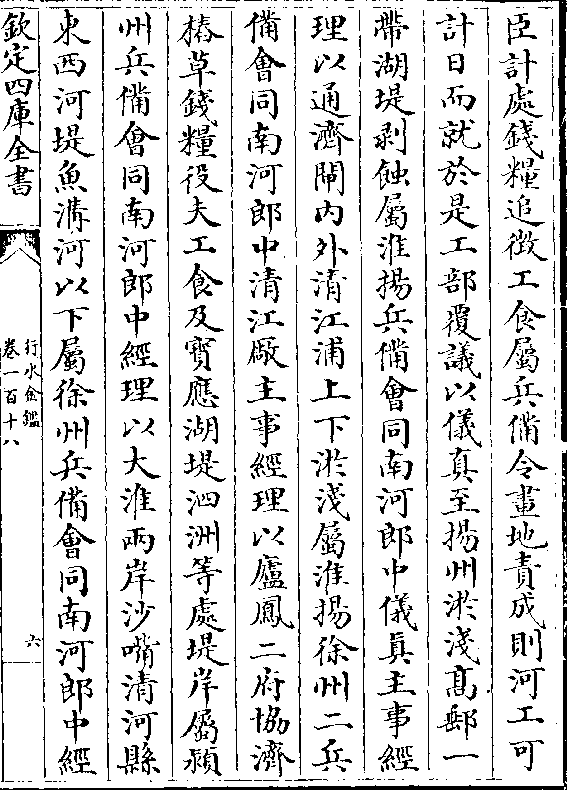 臣計處錢糧追徴工食屬兵備令畫地責成則河工可
計日而就於是工部覆議以儀真至揚州淤淺髙郵一
帶湖堤剥蝕屬淮揚兵備會同南河郎中儀真主事經
理以通濟閘内外清江浦上下淤淺屬淮揚徐州二兵
備會同南河郎中清江厰主事經理以廬鳳二府協濟
樁草錢糧役夫工食及寳應湖堤泗洲等處堤岸屬潁
州兵備會同南河郎中經理以大淮兩岸沙嘴清河縣
東西河堤魚溝河以下屬徐州兵備會同南河郎中經
欽定四庫全書
行水金鑑
卷一百十八
六